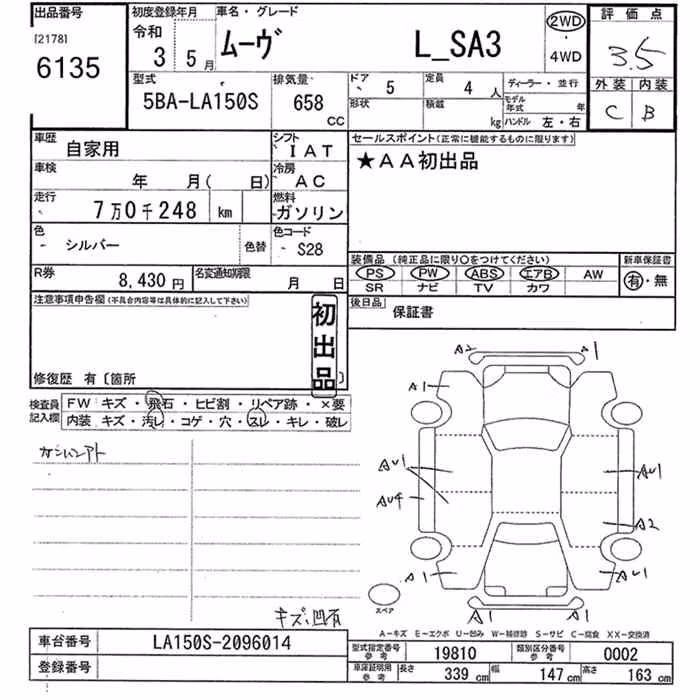 出品番号 初度登録年月 車名・グレード 評価点
[2178] 令和 ムーヴ L_SA3 2WD 3.5
6135 3 5月 4WD
型式 排気量 ドア 5 定員 4人 ディーラー・並行 外装 内装
5BA-LA150S 658 CC 形状 積載 kg モデル年式 年 C B
ハンドル 左・右
車歴 自家用 シフト IAT セールスポイント(正常に機能するものに限ります)
車検 年 月( 日) 冷房 AC ★AA初出品
走行 7万0千248 km 燃料 ガソリン
色 シルバー 色替 色コード S28
装備品 (純正品に限り○をつけてください) 新車保証書
R券 8,430円 名変通知期限 月 日 PS PW ABS エアB AW 有・無
SR ナビ TV カワ
注意事項申告欄(不具合内容等は具体的に記入して下さい) 初出品 後日品 保証書
修復歴 有〔箇所 〕
検査員記入欄 FW キズ・飛石・ヒビ割・リペア跡・×要
内装 キズ・汚レ・コゲ・穴・スレ・キレ・破レ
A2 A1
A1
AU1 AU1
AU4 A2
A1 AU1
A1 A1
スペア
キズ凹有
A-キズ E-エクボ U-凹み W-補修跡 S-サビ C-腐食 XX-交換済
車台番号 LA150S-2096014 型式指定番号 参考 19810 類別区分番号 参考 0002
登録番号 車庫証明用 参考 長さ 339cm 幅 147cm 高さ 163cm